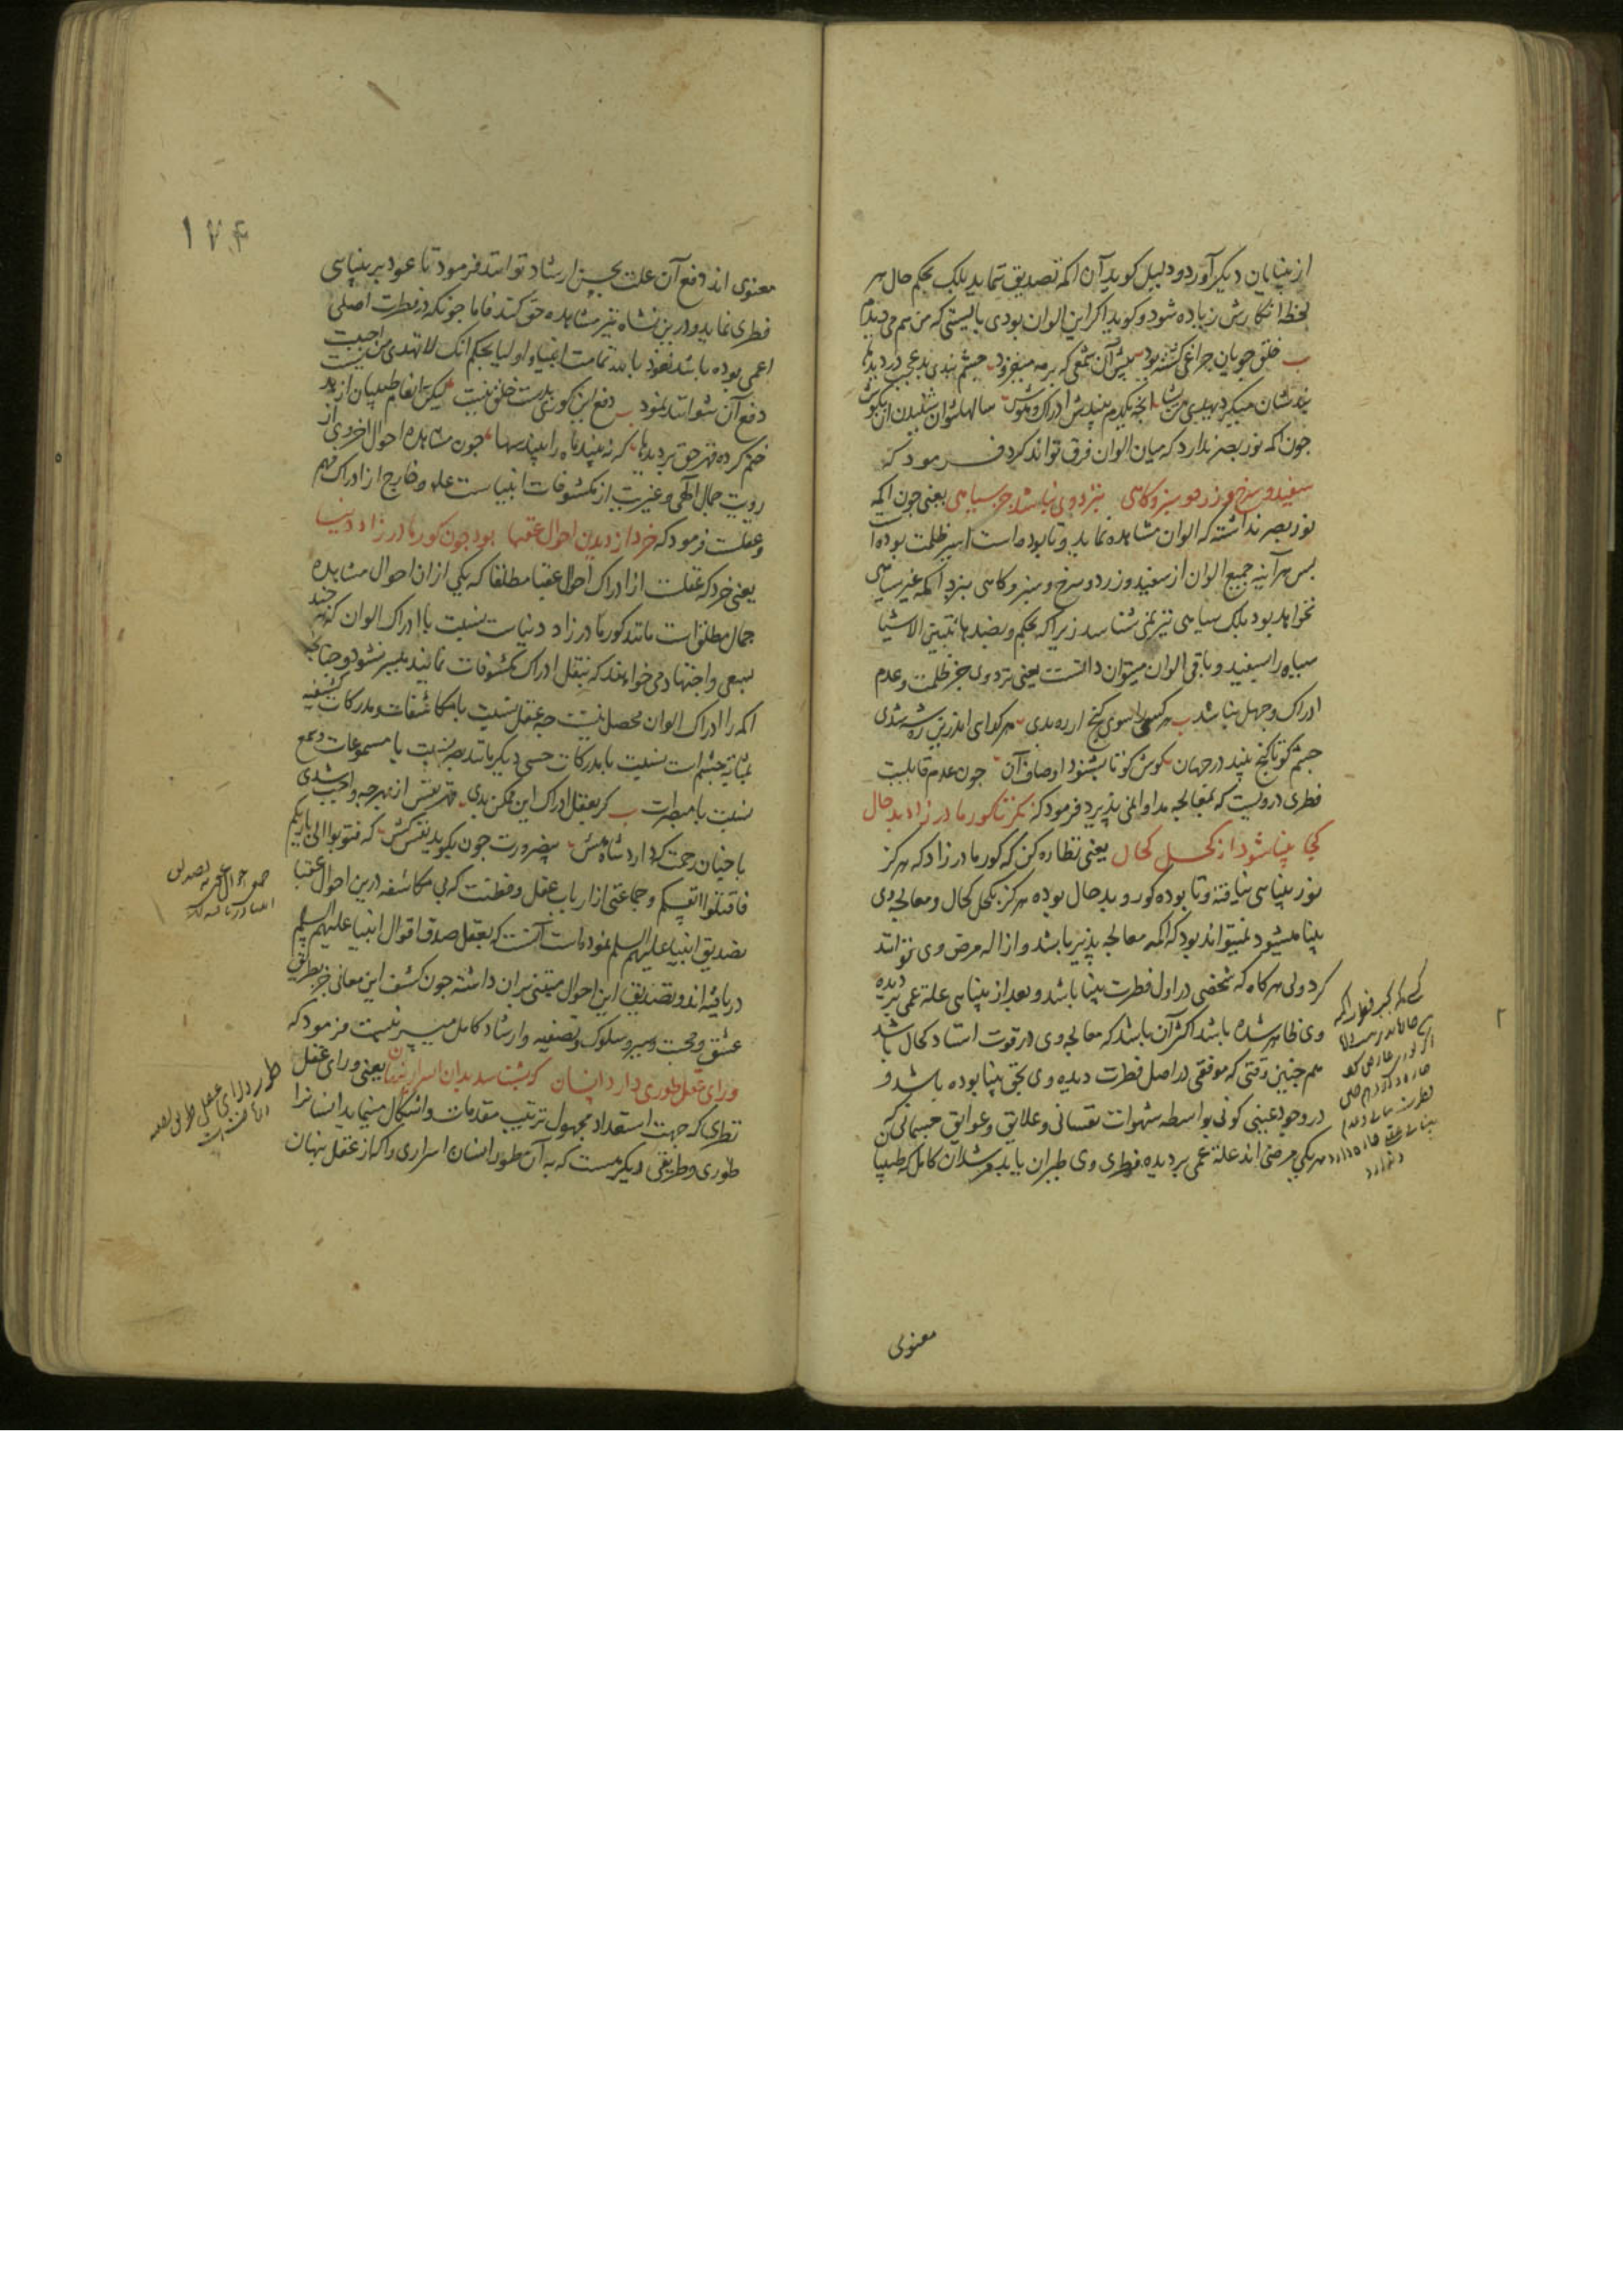 از بینایان دیگر آورد و دلیل کوید آن اکمه تصدیق ننماید بلک بحکم حال هر
لحظه انکارش زیاده شود و کوید اکر این الوان بودی بایستی که من هم می دیدم
خلق جویان چراغی کشته بود پیش آن شمعی که بر مه میفزود چشم بندی بد عجب در دیدها
سالها نتوان شنیدن آن بکوش
چون اکمه نور بصر ندارد که میان الوان فرق تواند کرد فرمود که
سفید و سرخ و زرد و سبز و کاهی بنزد وی نباشد جز سیاهی یعنی چون اکمه
نور بصر نداشته که الوان مشاهده نماید و تا بوده است اسیر ظلمت بوده است
بس هر آینه جمیع الوان از سفید و زرد و سرخ و سبز و کاهی بنزد اکمه غیر سیاهی
نخواهد بود بلک سیاهی نیز نمی شناسد زیرا که بحکم و بضدها تتبین الاشیا
سیاه را بسفید و باقی الوان میتوان دانست یعنی نزد وی جز ظلمت و عدم
ادراک و جهل نباشد هر کسی را سوی کنج ار ره بدی هر کدای اندرین ره شه شدی
چشم کو تا کنج بیند در جهان کوش کو تا بشنود اوصاف آن چون عدم قابلیت
فطری دردیست که بمعالجه مداوا نمی پذیرد فرمود که نکر تا کور مادرزاد بدحال
کجا بینا شود از کحل کحال یعنی نظاره کن که کور مادرزاد که هرکز
نور بینایی نیافته و تا بوده کور و بدحال بوده هرکز بکحل کحال و معالجه وی
بینا میشود نمیتواند بود که اکمه معالجه پذیر باشد و ازاله مرض وی توانند
کرد ولی هرکاه که شخصی در اول فطرت بینا باشد و بعد از بینایی علة عمی بر دیده
وی ظاهر شده باشد اکثر آن باشد که معالجه وی در قوت استاد کحال باشد
هم چنین وقتی که موفقی در اصل فطرت دیده وی بحق بینا بوده باشد و
در وجود عینی کونی بواسطه شهوات نفسانی و علایق و عوایق جسمانی که
هر یکی مرضی اند علة عمی بر دیده فطری وی طیران یابد مرشدان کامل که طبیبا
معنوی
۱۷۴
معنوی اند دفع آن علت بحسن ارشاد توانند فرمود تا عود بر بینایی
فطری نماید و درین نشاه نیز مشاهده حق کند فاما چونکه در فطرت اصلی
اعمی بوده باشد نعوذ بالله تمامت انبیا و اولیا بحکم انک لا تهدی من احببت
دفع آن نتوانند نمود دفع این کوری بدست خلق نیست لیکن انعام طبیبان از بد نیست
ختم کرده قهر حق بر دیدها که نه بیند ماه را بیند سها چون مشاهده احوال اخروی از
رویت جمال الهی و غیرت از مکشوفات انبیاست علم و خارج از ادراک فهم
و عقلست فرمود که خرد از دیدن احوال عقبا بود چون کور مادرزاد دنیا
یعنی خرد که عقلست از ادراک احوال عقبا مطلقا که یکی از ان احوال مشاهده
جمال مطلق است مانند کور مادرزاد دنیاست بنسبت با ادراک الوان که هر چند
بسعی و اجتهاد می خواهند که بنقل ادراک مکشوفات نمایند میسر نشود و چنانچه
اکمه را ادراک الوان محصل نیست چه عقل بنسبت با مکاشفات و مدرکات کشفیه
بمثابه چشم است بنسبت با مدرکات حسی دیکر مانند بصر بنسبت با مسموعات و سمع
بنسبت با مبصرات کر بعقل ادراک این ممکن بدی قهر نفس از بهر چه واجب شدی
با چنان رحمت که دارد شاه هش بی ضرورت چون بکوید نفس کش که فتوبوا الی بارئکم
فاقتلوا انفسکم و جماعتی از ارباب عقل و فطنت که بی مکاشفه درین احوال عقبا
تصدیق انبیا علیهم السلم نموده است آنست که بعقل صدق اقوال انبیا علیهم السلم
دریافته اند و تصدیق این احوال مبتنی بران داشته چون کشف این معانی جز بطریق
عشق و محبت و سیر و سلوک و تصفیه و ارشاد کامل میسر نیست فرمود که
ورای عقل طوری دارد انسان که بشناسد بدان اسرار پنهان یعنی ورای عقل
نظری که جهت استعداد مجهول ترتیب مقدمات و اشکال مینماید انسانرا
طوری و طریقی دیکر هست که به آن طور انسان اسراری را که از عقل پنهان